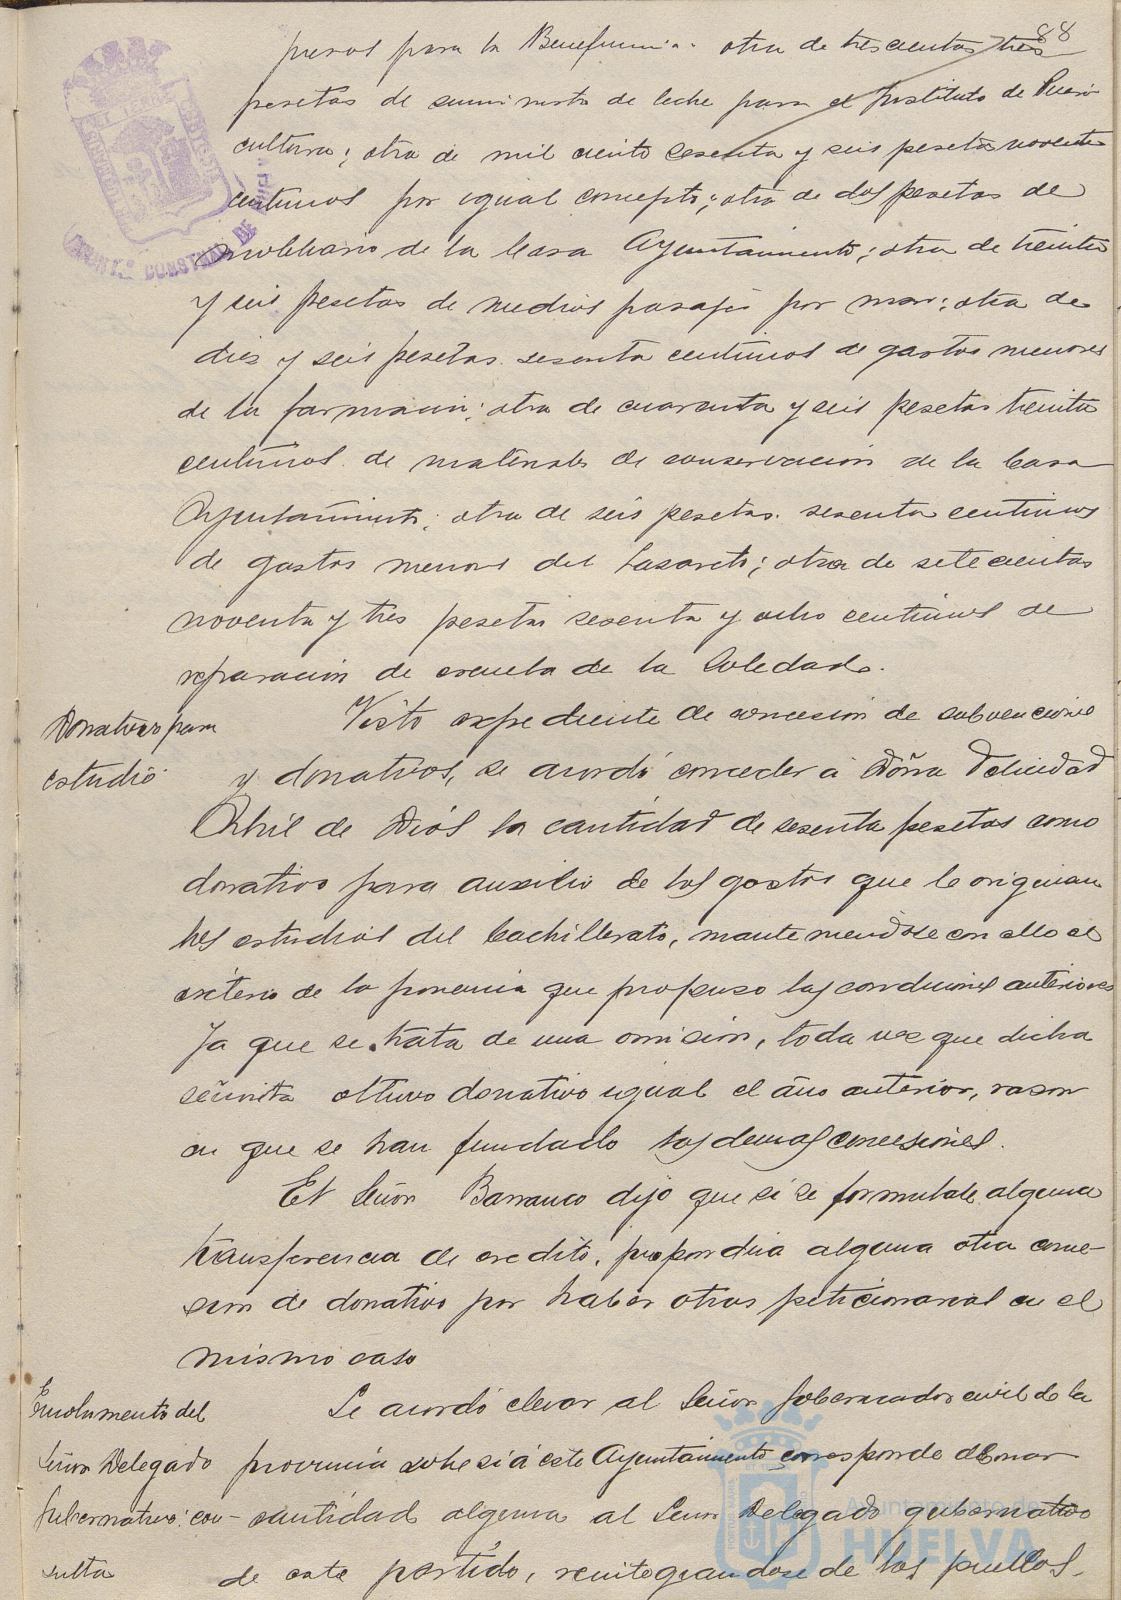 88
presos para la Beneficencia; otra de trescientas tres
pesetas de suministro de leche para el Instituto de Pueri-
cultura; otra de mil ciento sesenta y seis pesetas noventa
centimos por igual concepto; otra de dos pesetas de
mobiliario de la Casa Ayuntamiento; otra de treinta
y seis pesetas de medios pasajes por mar; otra de
diez y seis pesetas sesenta centimos de gastos menores
de la farmacia; otra de cuarenta y seis pesetas treinta
centimos de materiales de conservación de la Casa
Ayuntamiento; otra de seis pesetas sesenta centimos
de gastos menores del Lazareto; otra de setecientas
noventa y tres pesetas sesenta y ocho centimos de
reparación de escuela de la Soledad.
Donativos para
estudio.
Visto expediente de concesión de subvenciones
y donativos, se acordó conceder á Doña Felicidad
Abril de Diós la cantidad de sesenta pesetas como
donativo para auxilio de los gastos que le originan
los estudios del Bachillerato, manteniendose con ello el
criterio de la ponencia que propuso las condiciones anteriores
ya que se trata de una omisión, toda vez que dicha
señorita obtuvo donativo igual el año anterior, razon
en que se han fundado las demas concesiones.
El Señor Barranco dijo que si se formulase alguna
transferencia de credito, propondria alguna otra conce-
sion de donativo por haber otras peticionarias en el
mismo caso
Emolumento del
Señor Delegado
Gubernativo: con-
sulta
Se acordó elevar al Señor Gobernador civil de la
provincia sobre si á este Ayuntamiento corresponde abonar
cantidad alguna al Señor Delegado gubernativo
de este partido, reintegrandose de los pueblos.
AYUNT.º CONSTNAL DE HUELVA
Ayuntamiento de
HUELVA